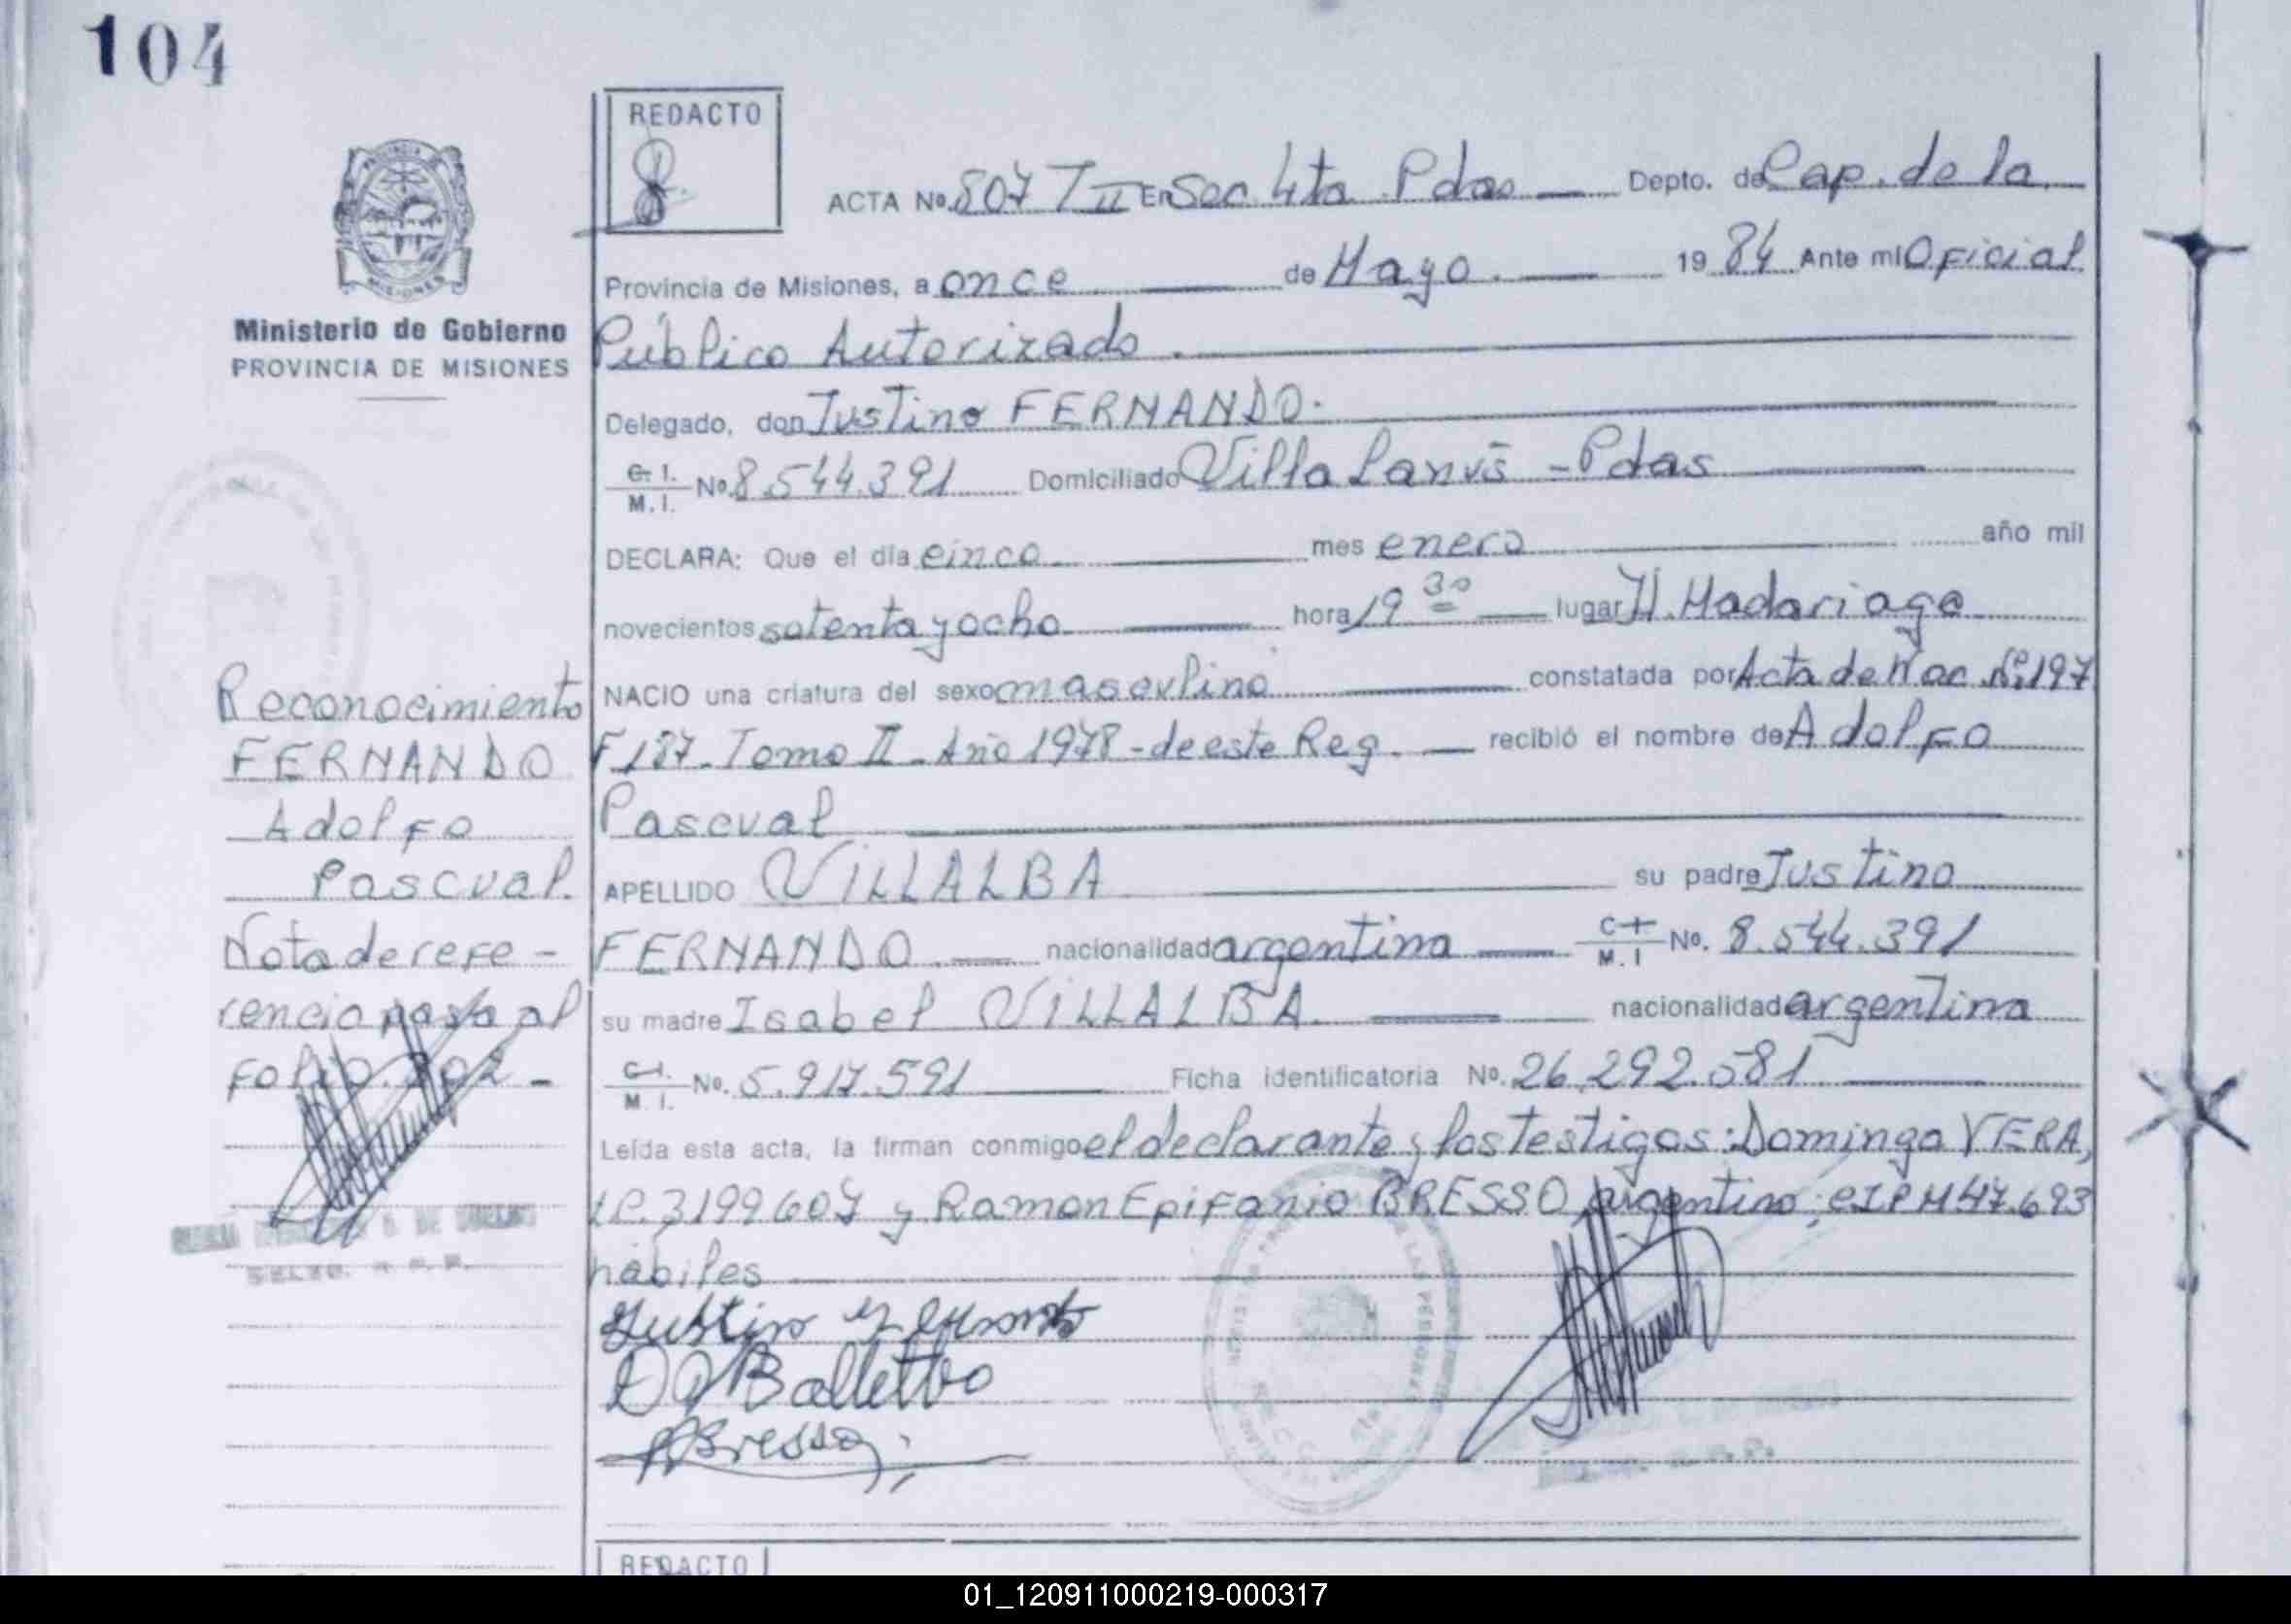 104
REDACTO
ACTA Nº 807 T II En Sec. 4ta. Pdas Depto. de Cap. de la
Provincia de Misiones, a once de Mayo. 1984 Ante mi Oficial
Ministerio de Gobierno
PROVINCIA DE MISIONES
Público Autorizado.
Delegado, don Justino FERNANDO.
C. I. M. I. Nº 8.544.391 Domiciliado Villa Lanús - Pdas
DECLARA: Que el día cinco mes enero año mil
novecientos setenta y ocho hora 19 30 lugar H. Madariaga
NACIO una criatura del sexo masculino constatada por Acta de Nac. Nº 197
F 187. Tomo II - Año 1978 - de este Reg. recibió el nombre de Adolfo
Pascual
APELLIDO VILLALBA su padre Justino
FERNANDO. nacionalidad argentina C I M. I Nº. 8.544.391
su madre Isabel VILLALBA nacionalidad argentina
C. I. M. I. Nº. 5.917.591 Ficha identificatoria Nº. 26.292.581
Leída esta acta, la firman conmigo el declarante y los testigos: Domingo VERA,
3199607 y Ramon Epifanio BRESSO, argentino, CIPM 47.693
hábiles
Reconocimiento
FERNANDO
Adolfo
Pascual.
Nota de refe-
rencia pasa al
folio
Justino Fernando
Bresso
REDACTO
01_120911000219-000317